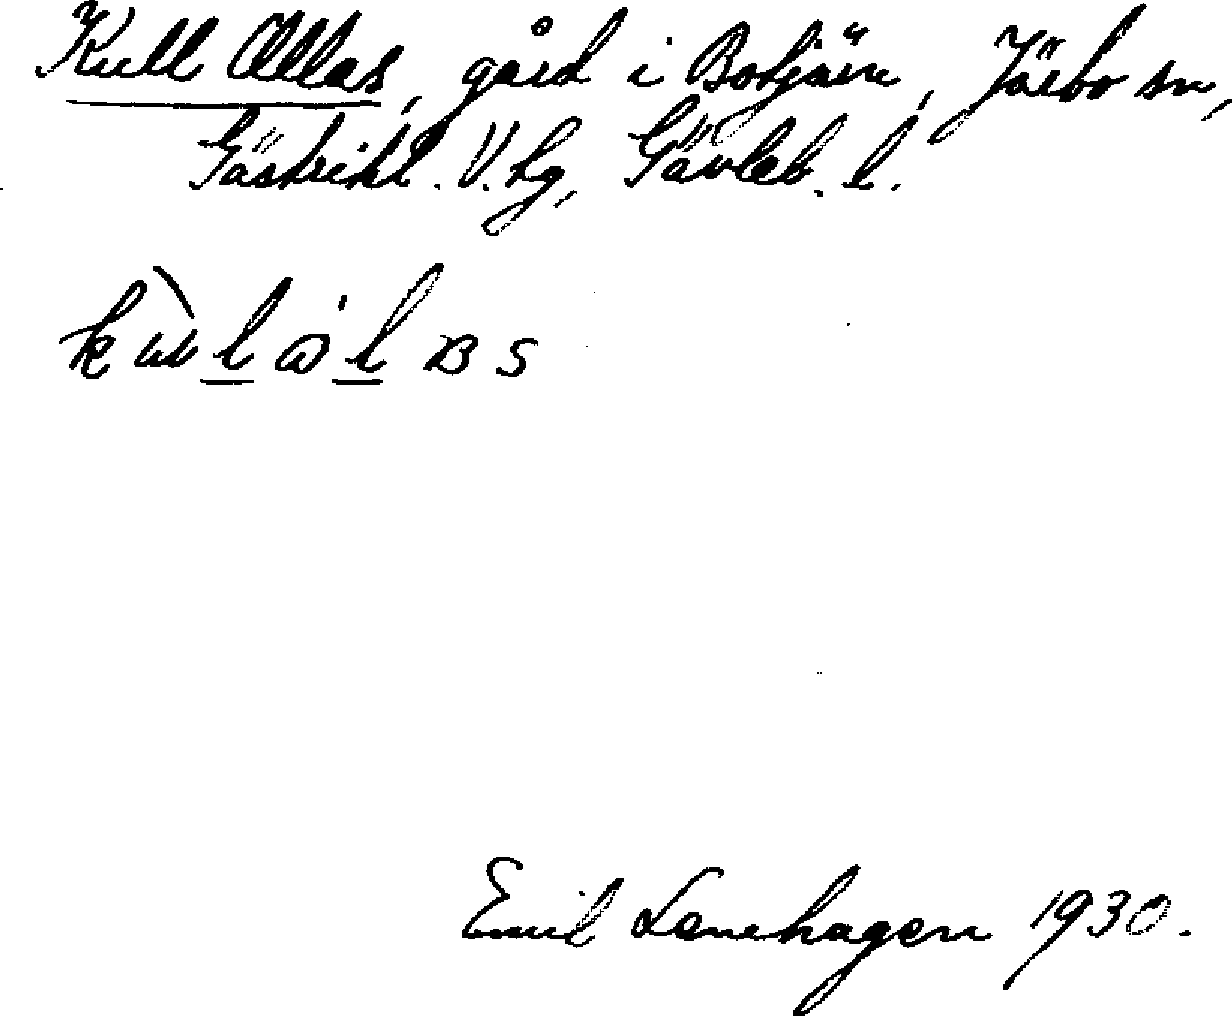 Kull Ollas, gård i Botjärn, Järbo sn,
Gästrikl. V. hg, Gävleb. l.
Emil Lenehagen 1930.